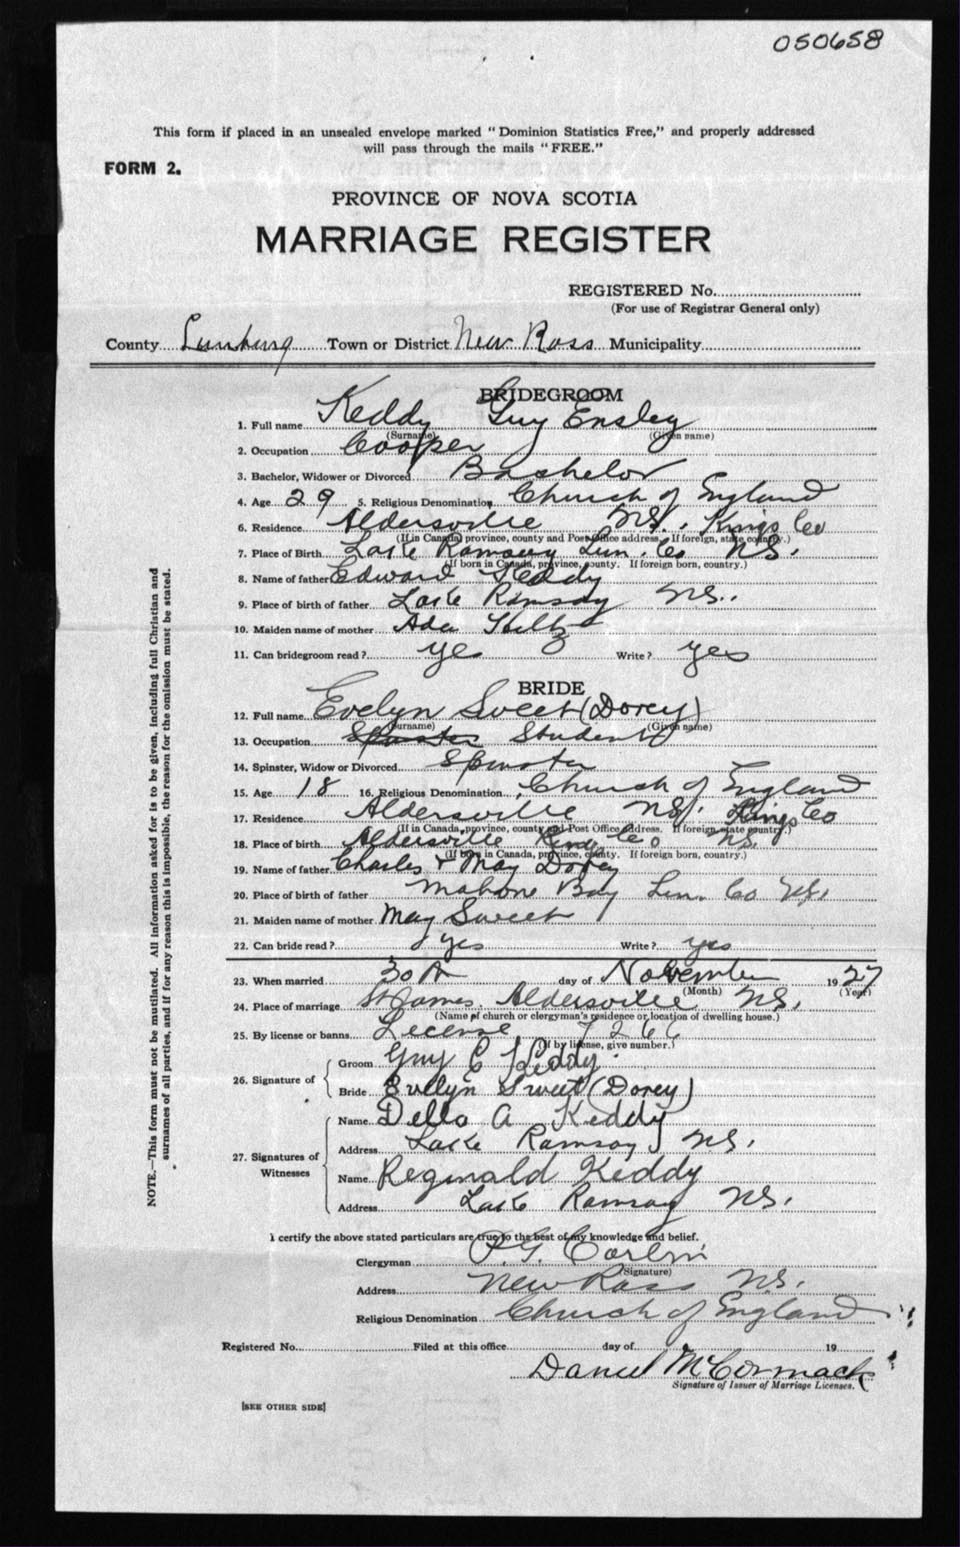 050658
This form if placed in an unsealed envelope marked "Dominion Statistics Free," and properly addressed
will pass through the mails "FREE."
FORM 2.
PROVINCE OF NOVA SCOTIA
MARRIAGE REGISTER
REGISTERED No.
(For use of Registrar General only)
County Lunburg Town or District New Ross Municipality
BRIDEGROOM
1. Full name Keddy Guy Ensley
(Surname) (Given name)
2. Occupation Cooper
3. Bachelor, Widower or Divorced Bachelor
4. Age 29 5. Religious Denomination Church of England
6. Residence Aldersville N.S. Kings Co
(If in Canada, province, county and Post Office address. If foreign, state country.)
7. Place of Birth Lake Ramsay Lun. Co N.S.
(If born in Canada, province, county. If foreign born, country.)
8. Name of father Edward Keddy
9. Place of birth of father Lake Ramsay N.S.
10. Maiden name of mother Ada Hiltz
11. Can bridegroom read? yes Write? yes
BRIDE
12. Full name Evelyn Sweet (Dorey)
(Surname) (Given name)
13. Occupation Spinster Student
14. Spinster, Widow or Divorced Spinster
15. Age 18 16. Religious Denomination Church of England
17. Residence Aldersville N.S. Kings Co
(If in Canada, province, county and Post Office address. If foreign, state country.)
18. Place of birth Aldersville Kings Co N.S.
(If born in Canada, province, county. If foreign born, country.)
19. Name of father Charles + May Dorey
20. Place of birth of father Mahone Bay Lun. Co N.S.
21. Maiden name of mother May Sweet
22. Can bride read? yes Write? yes
23. When married 30th day of November 1927
(Month) (Year)
24. Place of marriage St James Aldersville N.S.
(Name of church or clergyman's residence or location of dwelling house.)
25. By license or banns License 7266
(If by license, give number.)
26. Signature of Groom Guy E Keddy
Bride Evelyn Sweet (Dorey)
27. Signatures of Witnesses Name Della A Keddy
Address Lake Ramsay N.S.
Name Reginald Keddy
Address Lake Ramsay N.S.
I certify the above stated particulars are true to the best of my knowledge and belief.
Clergyman P.G.
(Signature)
Address New Ross N.S.
Religious Denomination Church of England
Registered No. Filed at this office day of 19
Daniel McCormack
Signature of Issuer of Marriage Licenses.
[SEE OTHER SIDE]
NOTE.—This form must not be mutilated. All information asked for is to be given, including full Christian and
surnames of all parties, and if for any reason this is impossible, the reason for the omission must be stated.